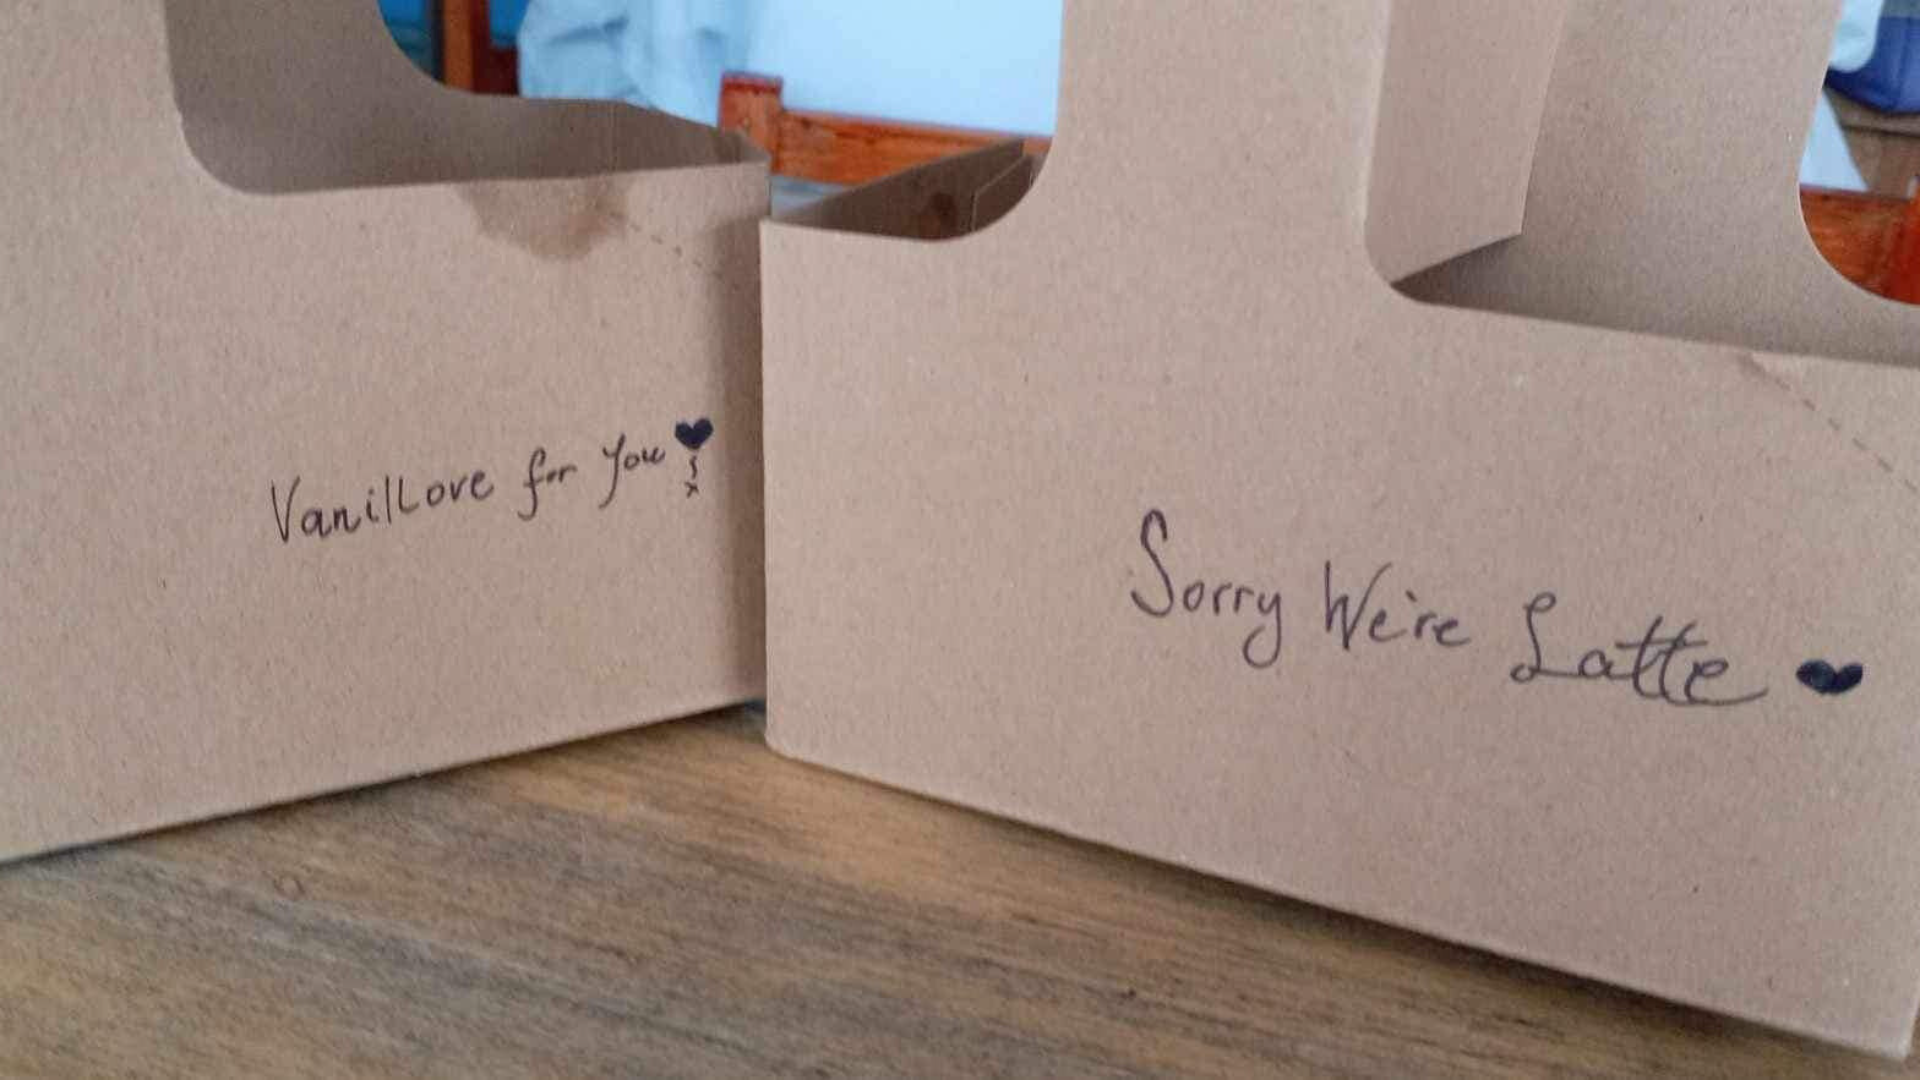 VanilLove for you ♥
Sorry We're Latte ♥